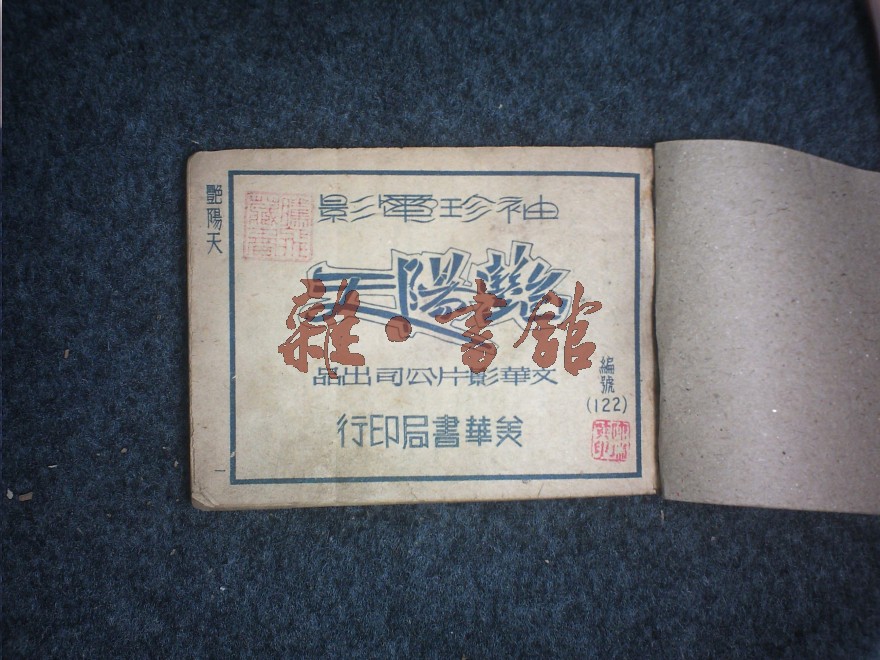 艷陽天
袖珍電影
艷陽天
雜·書館
文華影片公司出品
編號
(122)
美華書局印行
一